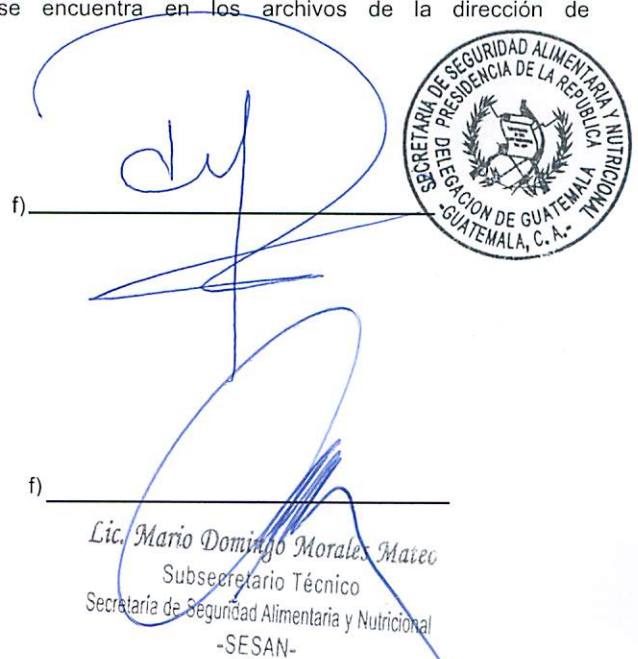 se encuentra en los archivos de la dirección de
SECRETARIA DE SEGURIDAD ALIMENTARIA Y NUTRICIONAL
PRESIDENCIA DE LA REPUBLICA
DELEGACION DE GUATEMALA
-GUATEMALA, C. A.-
f)
f)
Lic. Mario Domingo Morales Mateo
Subsecretario Técnico
Secretaria de Seguridad Alimentaria y Nutricional
-SESAN-